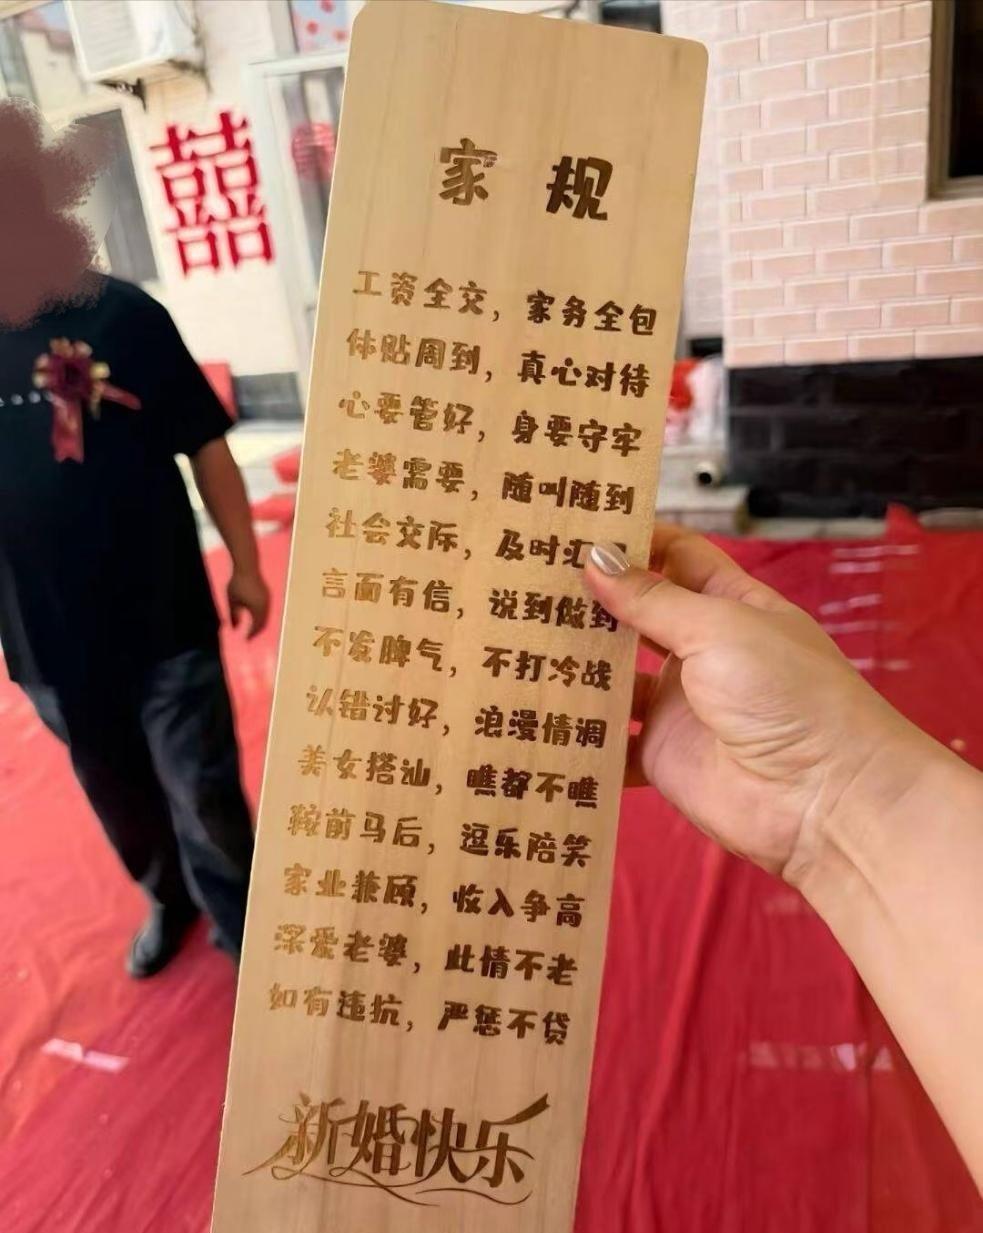 囍
家 规
工资全交，家务全包
体贴周到，真心对待
心要管好，身要守牢
老婆需要，随叫随到
社会交际，及时汇
言而有信，说到做到
不发脾气，不打冷战
认错讨好，浪漫情调
美女搭讪，瞧都不瞧
鞍前马后，逗乐陪笑
家业兼顾，收入争高
深爱老婆，此情不老
如有违抗，严惩不贷
新婚快乐